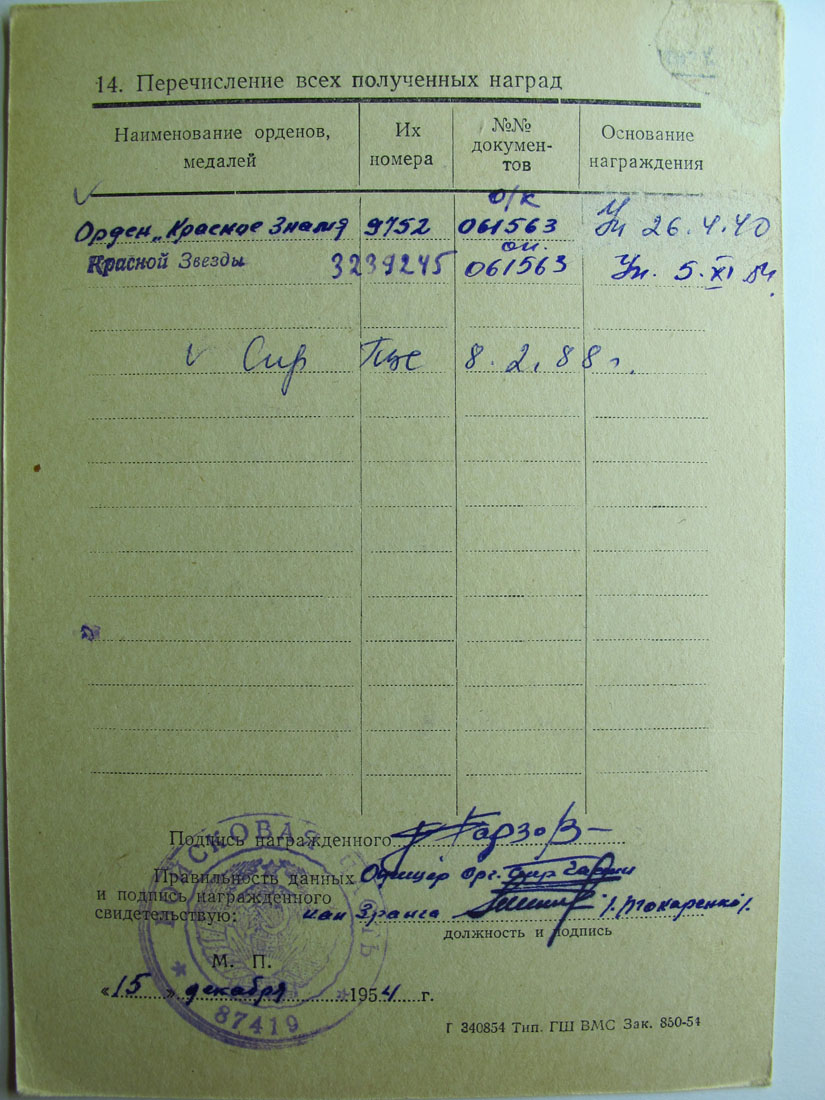 14. Перечисление всех полученных наград
Наименование орденов, медалей
Их номера
№№ докумен-тов
Основание награждения
о/к
Орден „Красное Знамя 9752 061563 Ук 26.4.40
Красной Звезды 3239245 061563 Ук. 5.XI 54
8.2.88г.
Подпись награжденного
Правильность данных Офицер
и подпись награжденного
свидетельствую: /Токаренко/.
должность и подпись
М. П.
«15» декабря 1954 г.
ВОЙСКОВАЯ ЧАСТЬ
87419
Г 340854 Тип. ГШ ВМС Зак. 850-54